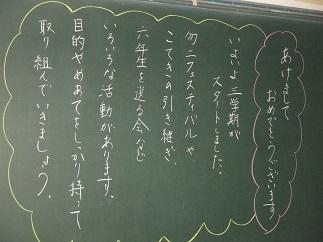 あけまして
おめでとうございます
いよいよ三学期が
スタートしました。
カーニフェスティバルや、
こてきの引き継ぎ、
六年生を送る会など
いろいろな活動があります。
目的やめあてをしっかり持って
取り組んでいきましょう。